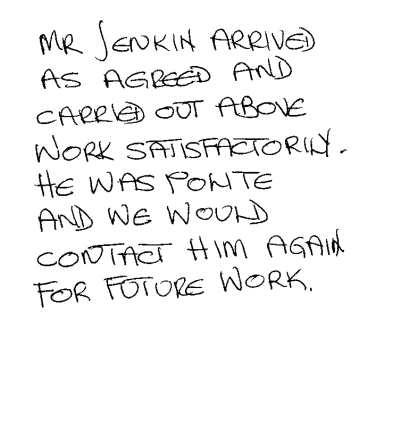 MR JENKIN ARRIVED
AS AGREED AND
CARRIED OUT ABOVE
WORK SATISFACTORILY.
HE WAS POLITE
AND WE WOULD
CONTACT HIM AGAIN
FOR FUTURE WORK.